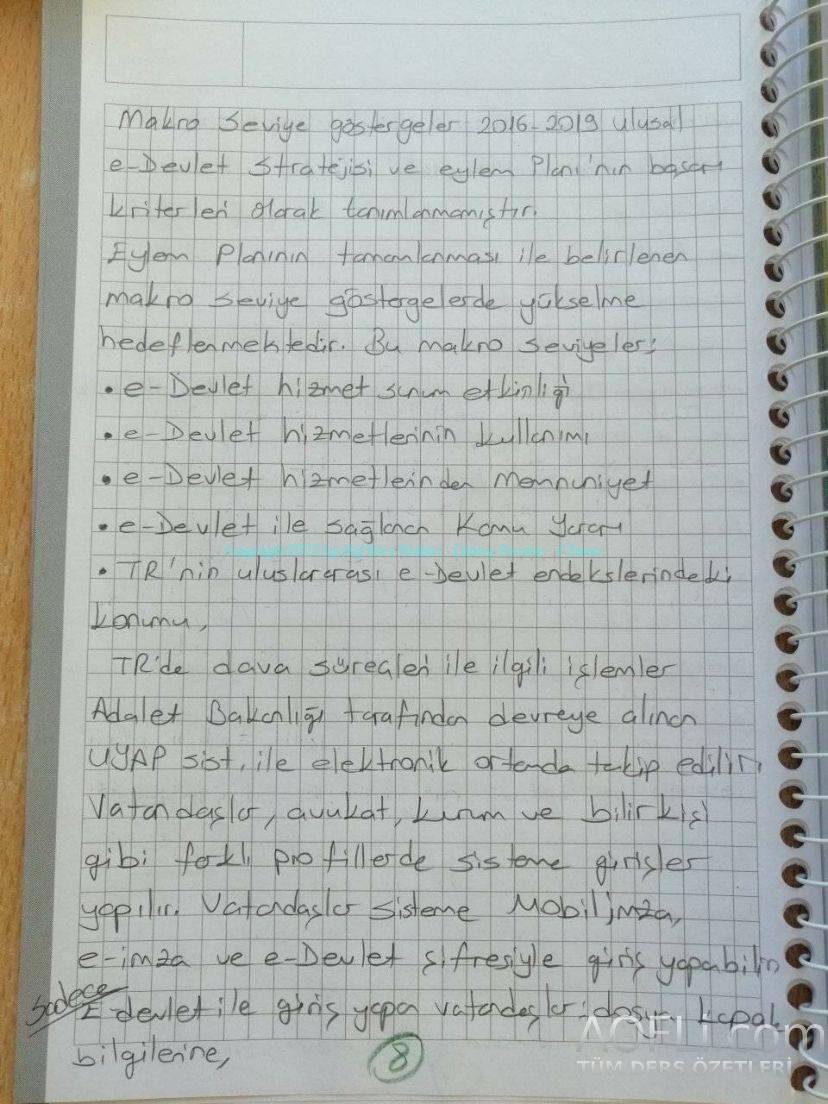 Makro Seviye göstergeler 2016-2019 ulusal
e-Devlet Stratejisi ve eylem Planı'nın başarı
kriterleri olarak tanımlanmamıştır.
Eylem Planının tamamlanması ile belirlenen
makro seviye göstergelerde yükselme
hedeflenmektedir. Bu makro seviyeler;
• e-Devlet hizmet sunum etkinliği
• e-Devlet hizmetlerinin kullanımı
• e-Devlet hizmetleinden Memnuniyet
• e-Devlet ile sağlanan Kamu Yararı
• TR'nin uluslararası e-Devlet endekslerindeki
konumu,
TR'de dava süreçleri ile ilgili işlemler
Adalet Bakanlığı tarafından devreye alınan
UYAP sist. ile elektronik ortamda takip edilir.
Vatandaşlar, avukat, kurum ve bilirkişi
gibi farklı profillerde sisteme girişler
yapılır. Vatandaşlar sisteme Mobil imza,
e-imza ve e-Devlet şifresiyle giriş yapabilir
Sadece
E-devlet ile giriş yapan vatandaşlar; dosya kapak
bilgilerine,
8
AÖFLÜ.com
TÜM DERS ÖZETLERİ